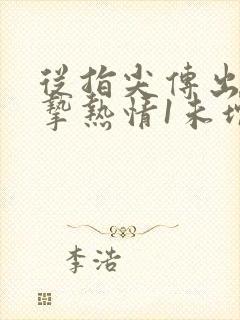 從指尖傳出
摯熱情1未增
李浩